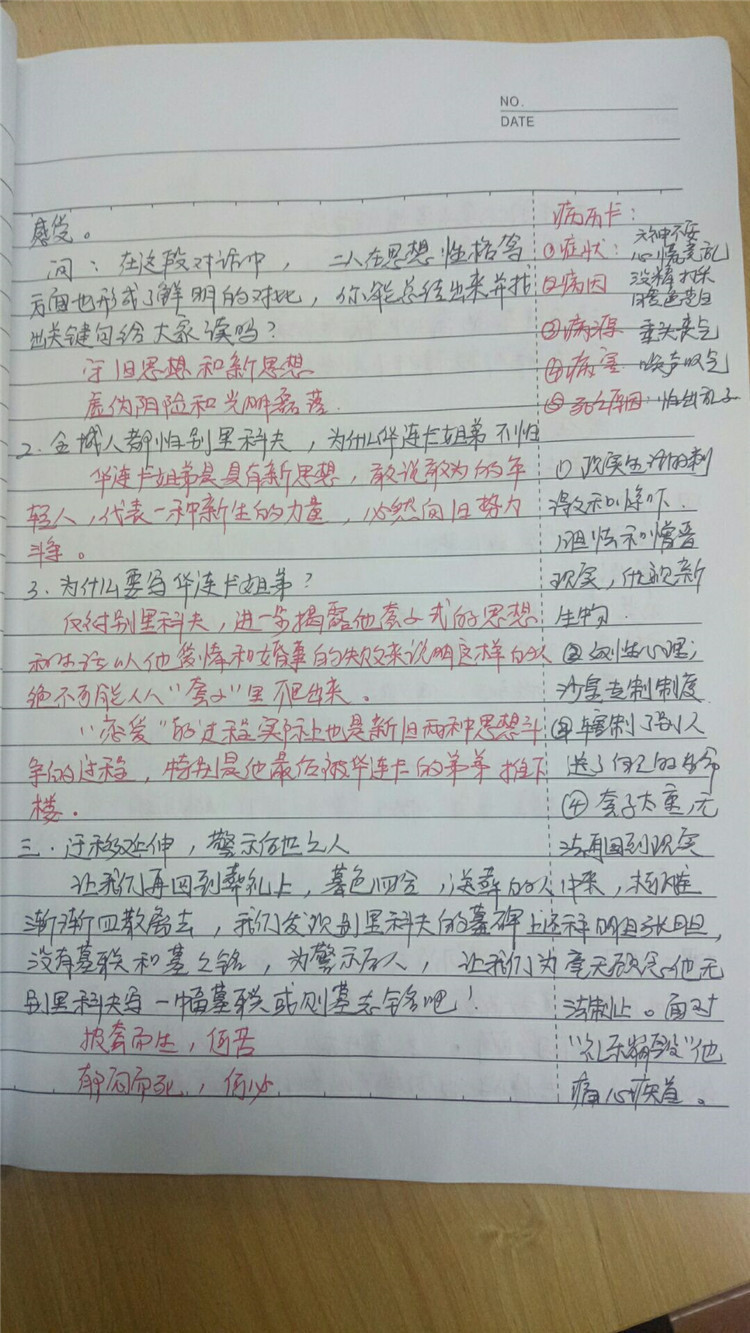 NO.
DATE
感受。
问：在这段对话中，二人在思想性格等
方面也形成了鲜明的对比，你能总结出来并找
出关键句给大家读吗？
守旧思想和新思想
虚伪阴险和光明磊落
2.全城人都怕别里科夫，为什么华连卡姐弟不怕
华连卡姐弟是具有新思想，敢说敢为的年
轻人，代表一种新生的力量，必然向旧势力
斗争。
3.为什么要写华连卡姐弟？
反衬别里科夫，进一步揭露他套子式的思想
和生活以他爱情和婚事的失败来说明这样的人
绝不可能从“套子”里爬出来。
“恋爱”的过程实际上也是新旧两种思想斗
争的过程，特别是他最后被华连卡的弟弟推下
楼.
三.迁移延伸，警示后世之人
让我们再回到葬礼上，暮色四合，送葬的人
渐渐四散离去，我们发现别里科夫的墓碑上
没有墓联和墓志铭，为警示后人，让我们为
别里科夫写一幅墓联或则墓志铭吧！
披套而生，何苦
郁闷而死，何必
病历卡：
①症状：六神不安
心慌意乱
②病因 没精打采
脸色苍白
③病源 垂头丧气
④病害 唉声叹气
⑤死亡原因 怕出乱子
①现实生活的刺
激和惊吓.
胆怯和憎恶
现实，仇视新
生物.
②奴性心理；
沙皇专制制度
③辖制了别人
送了自己的命
④套子太重，无
法再回到现实
中来，
法制止。面对
他
痛心疾首。